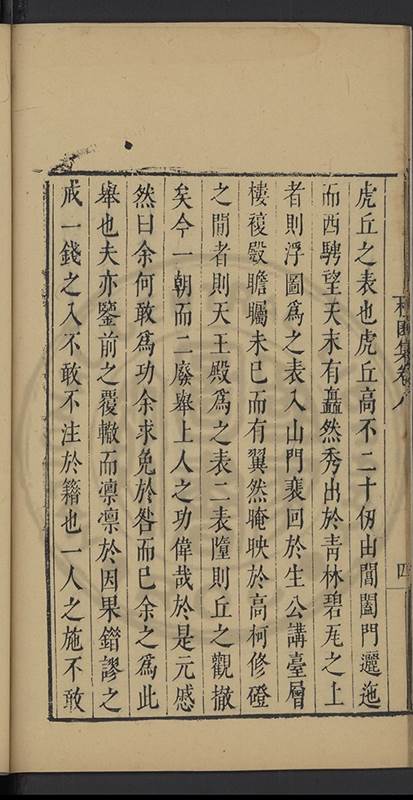 虎丘之表也虎丘高不二十仞由閶闔門邐迤
而西騁望天末有矗然秀出於青林碧瓦之上
者則浮圖爲之表入山門裵回於生公講臺層
棲複瞻矚未已而有翼然晻映於高柯修磴
之間者則天王殿爲之表二表隳則丘之觀撤
矣今一朝而二廢舉上人之功偉哉於是元慼
然曰余何敢爲功余求免於咎而已余之爲此
舉也夫亦鑒前之覆轍而凛凛於因果錯謬之
戒一錢之入不敢不注於籍也一人之施不敢
集卷八
四